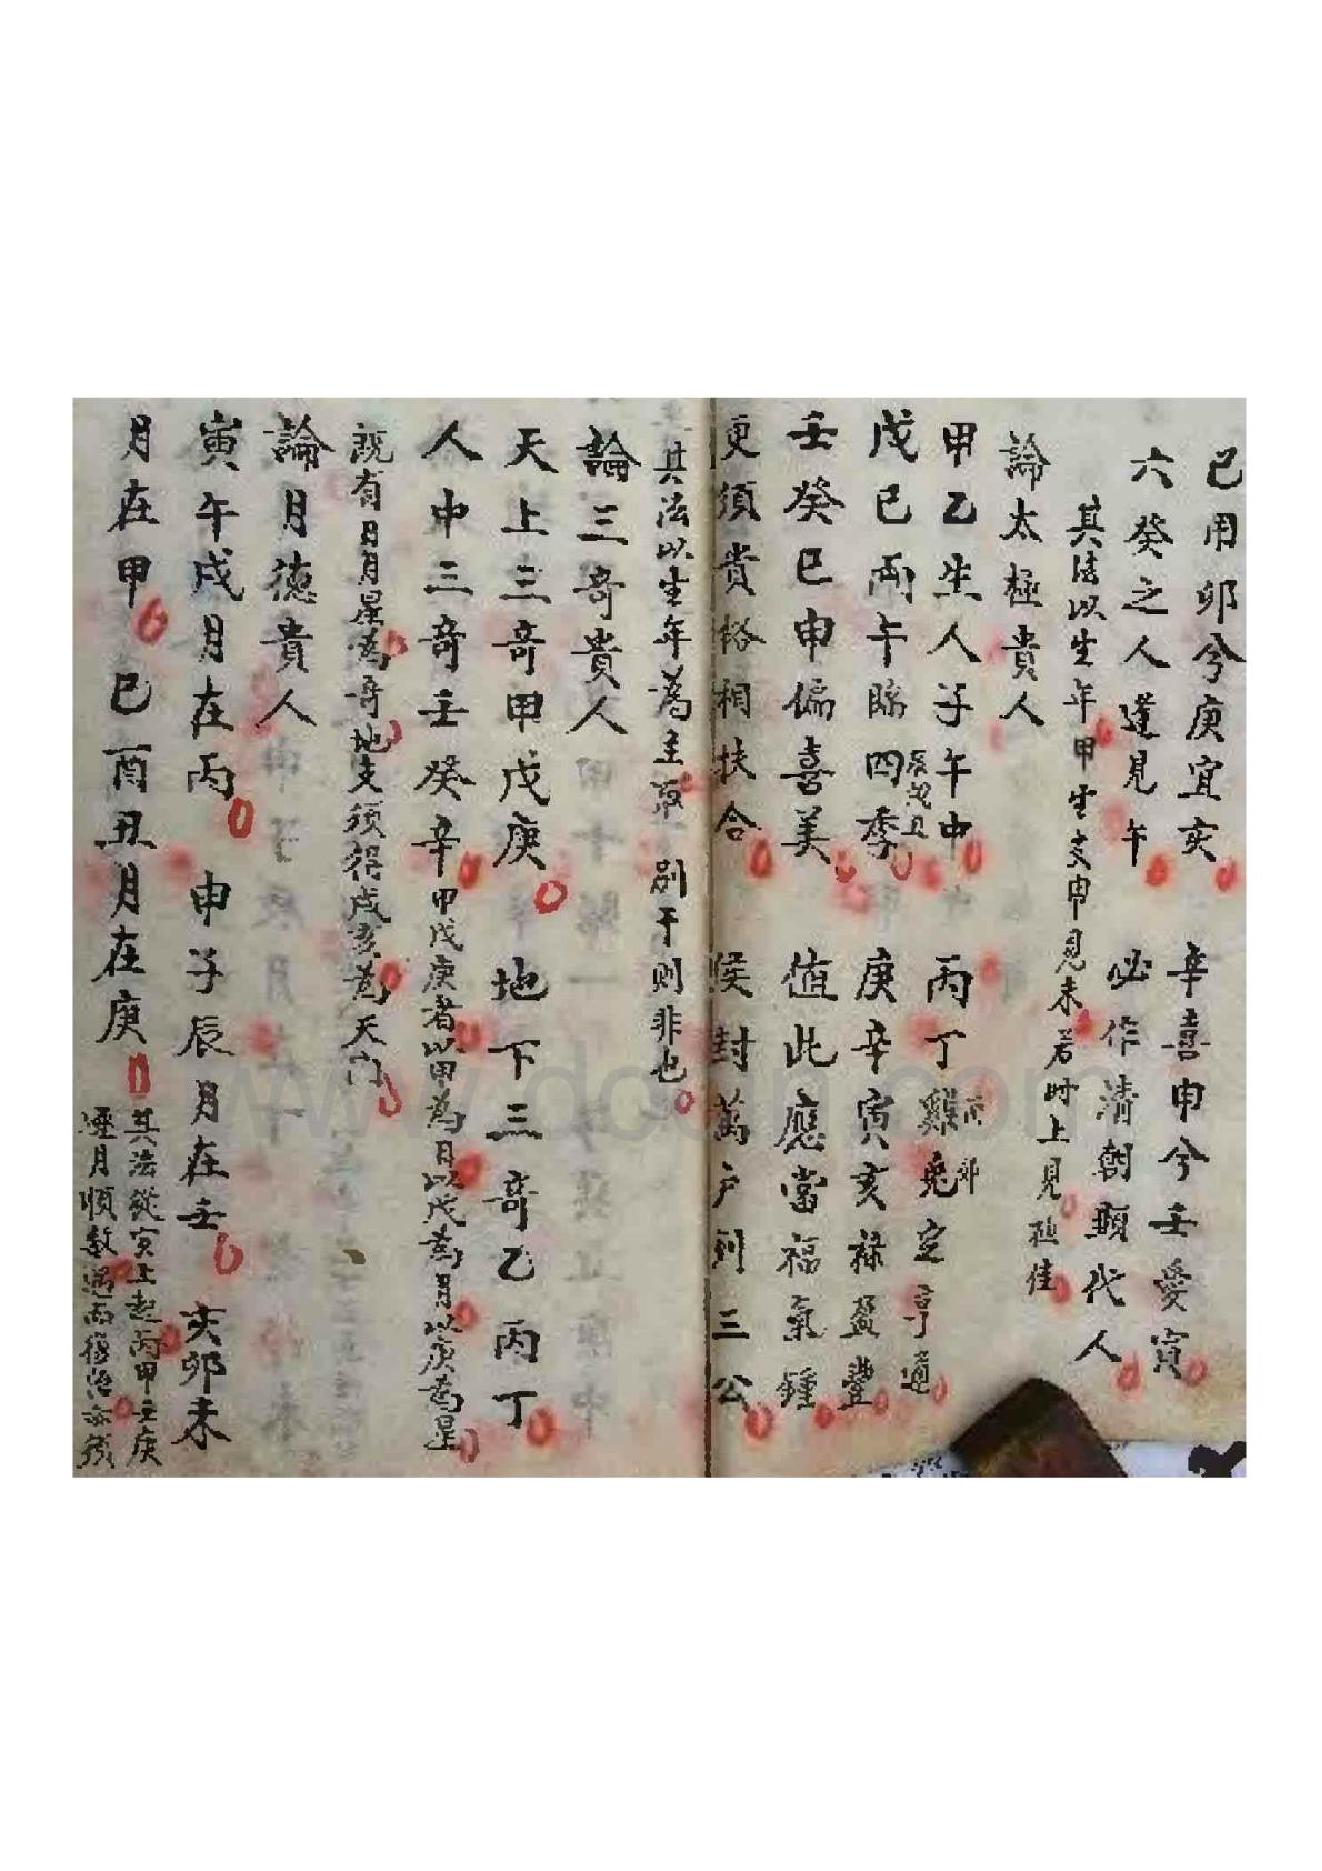 己用卯兮庚宜亥 辛喜申兮壬愛寅
六癸之人逢見午 必作清朝顯代人
其法以生年甲生支申見未若时上見極佳
論太極貴人
甲乙生人子午中 丙丁雞兔定亨通
酉卯
戊己兩午臨四季 庚辛寅亥祿盈豐
辰戌丑
壬癸巳申偏喜美 值此應當福氣鍾
更須貴格相扶合 候封萬户到三公
其法以生年為主取 别干则非也
論三奇貴人
天上三奇甲戊庚 地下三奇乙丙丁
人中三奇壬癸辛 甲戊庚者以甲為日以戊為月以庚為星
既有日月星為奇地支須得戌亥為天门
論月德貴人
寅午戌月在丙 申子辰月在壬 亥卯未
月在甲 巳酉丑月在庚
其法從寅上起丙甲壬庚
月順数遇丙
www.docin.com